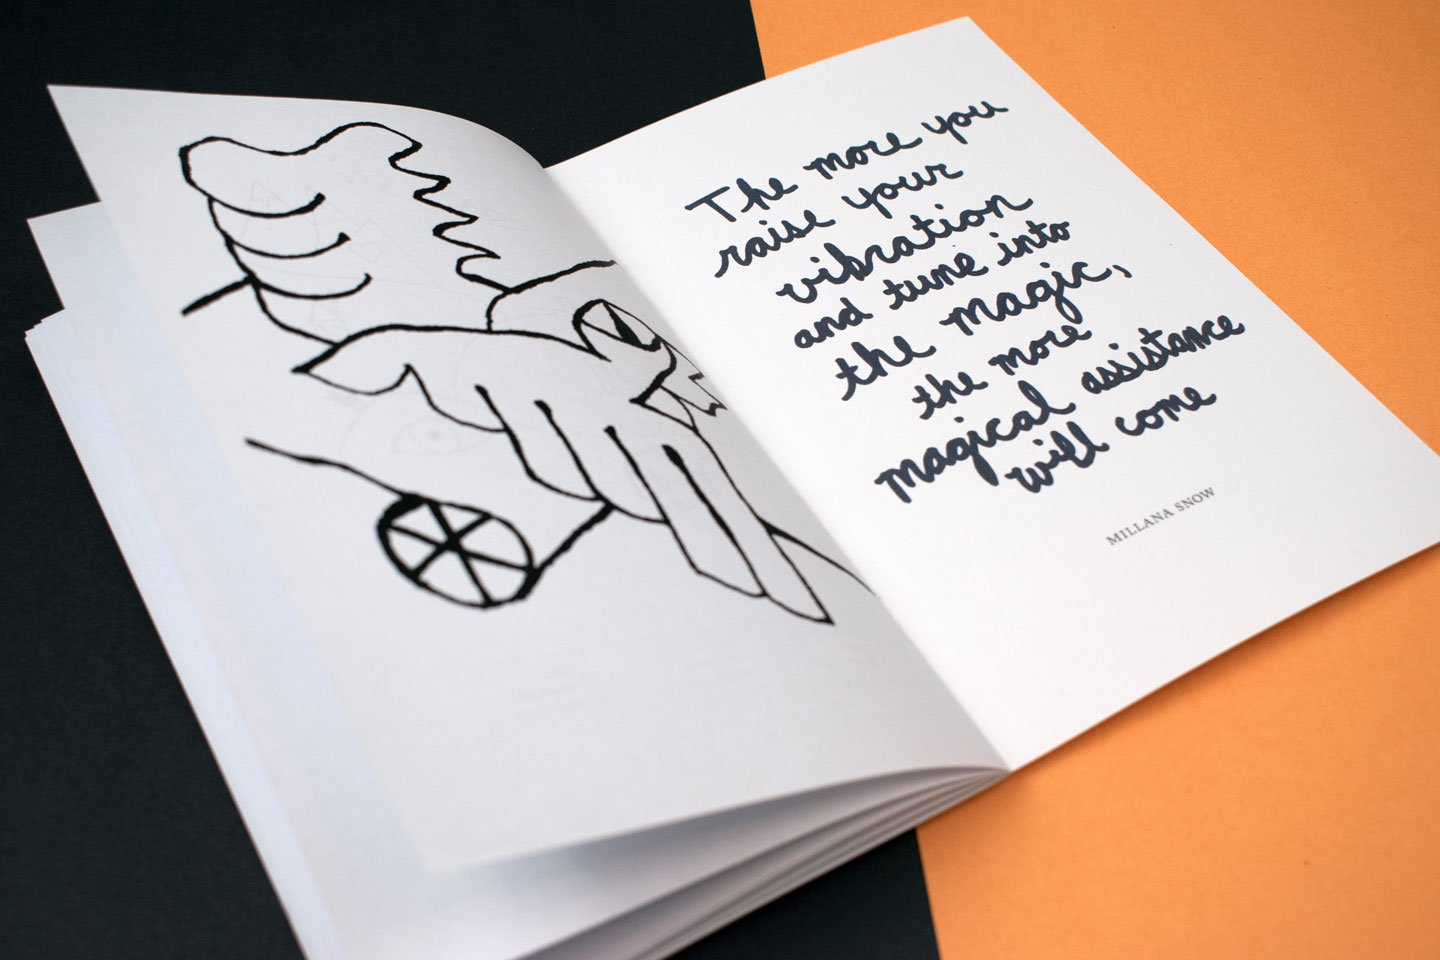 The more you
raise your
vibration
and tune into
the magic,
the more
magical assistance
will come
MILLANA SNOW